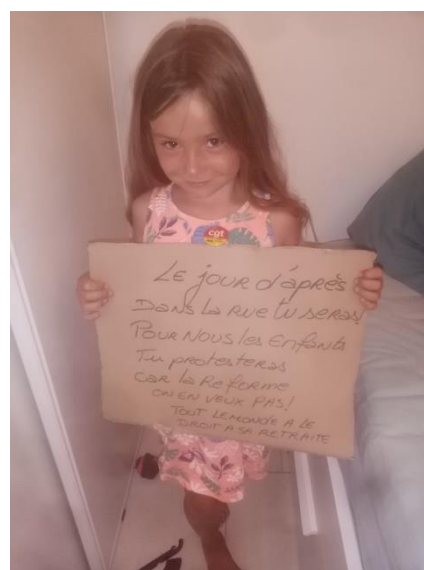 cgt
LE jour d'après
DANS LA RUE tu SERAS!
POUR NOUS les Enfants
Tu protesteras
CAR la Réforme
ON EN VEUX PAS!
TOUT LEMONDE A LE
DROIT A SA RETRAITE